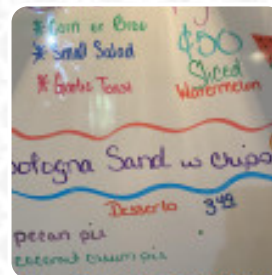 * Corn or Brocc
$50
* Small Salad
Sliced
* Garlic Toast
Watermelon
Bologna Sand w chips
Desserts 3.49
pecan pie
coconut cream pie